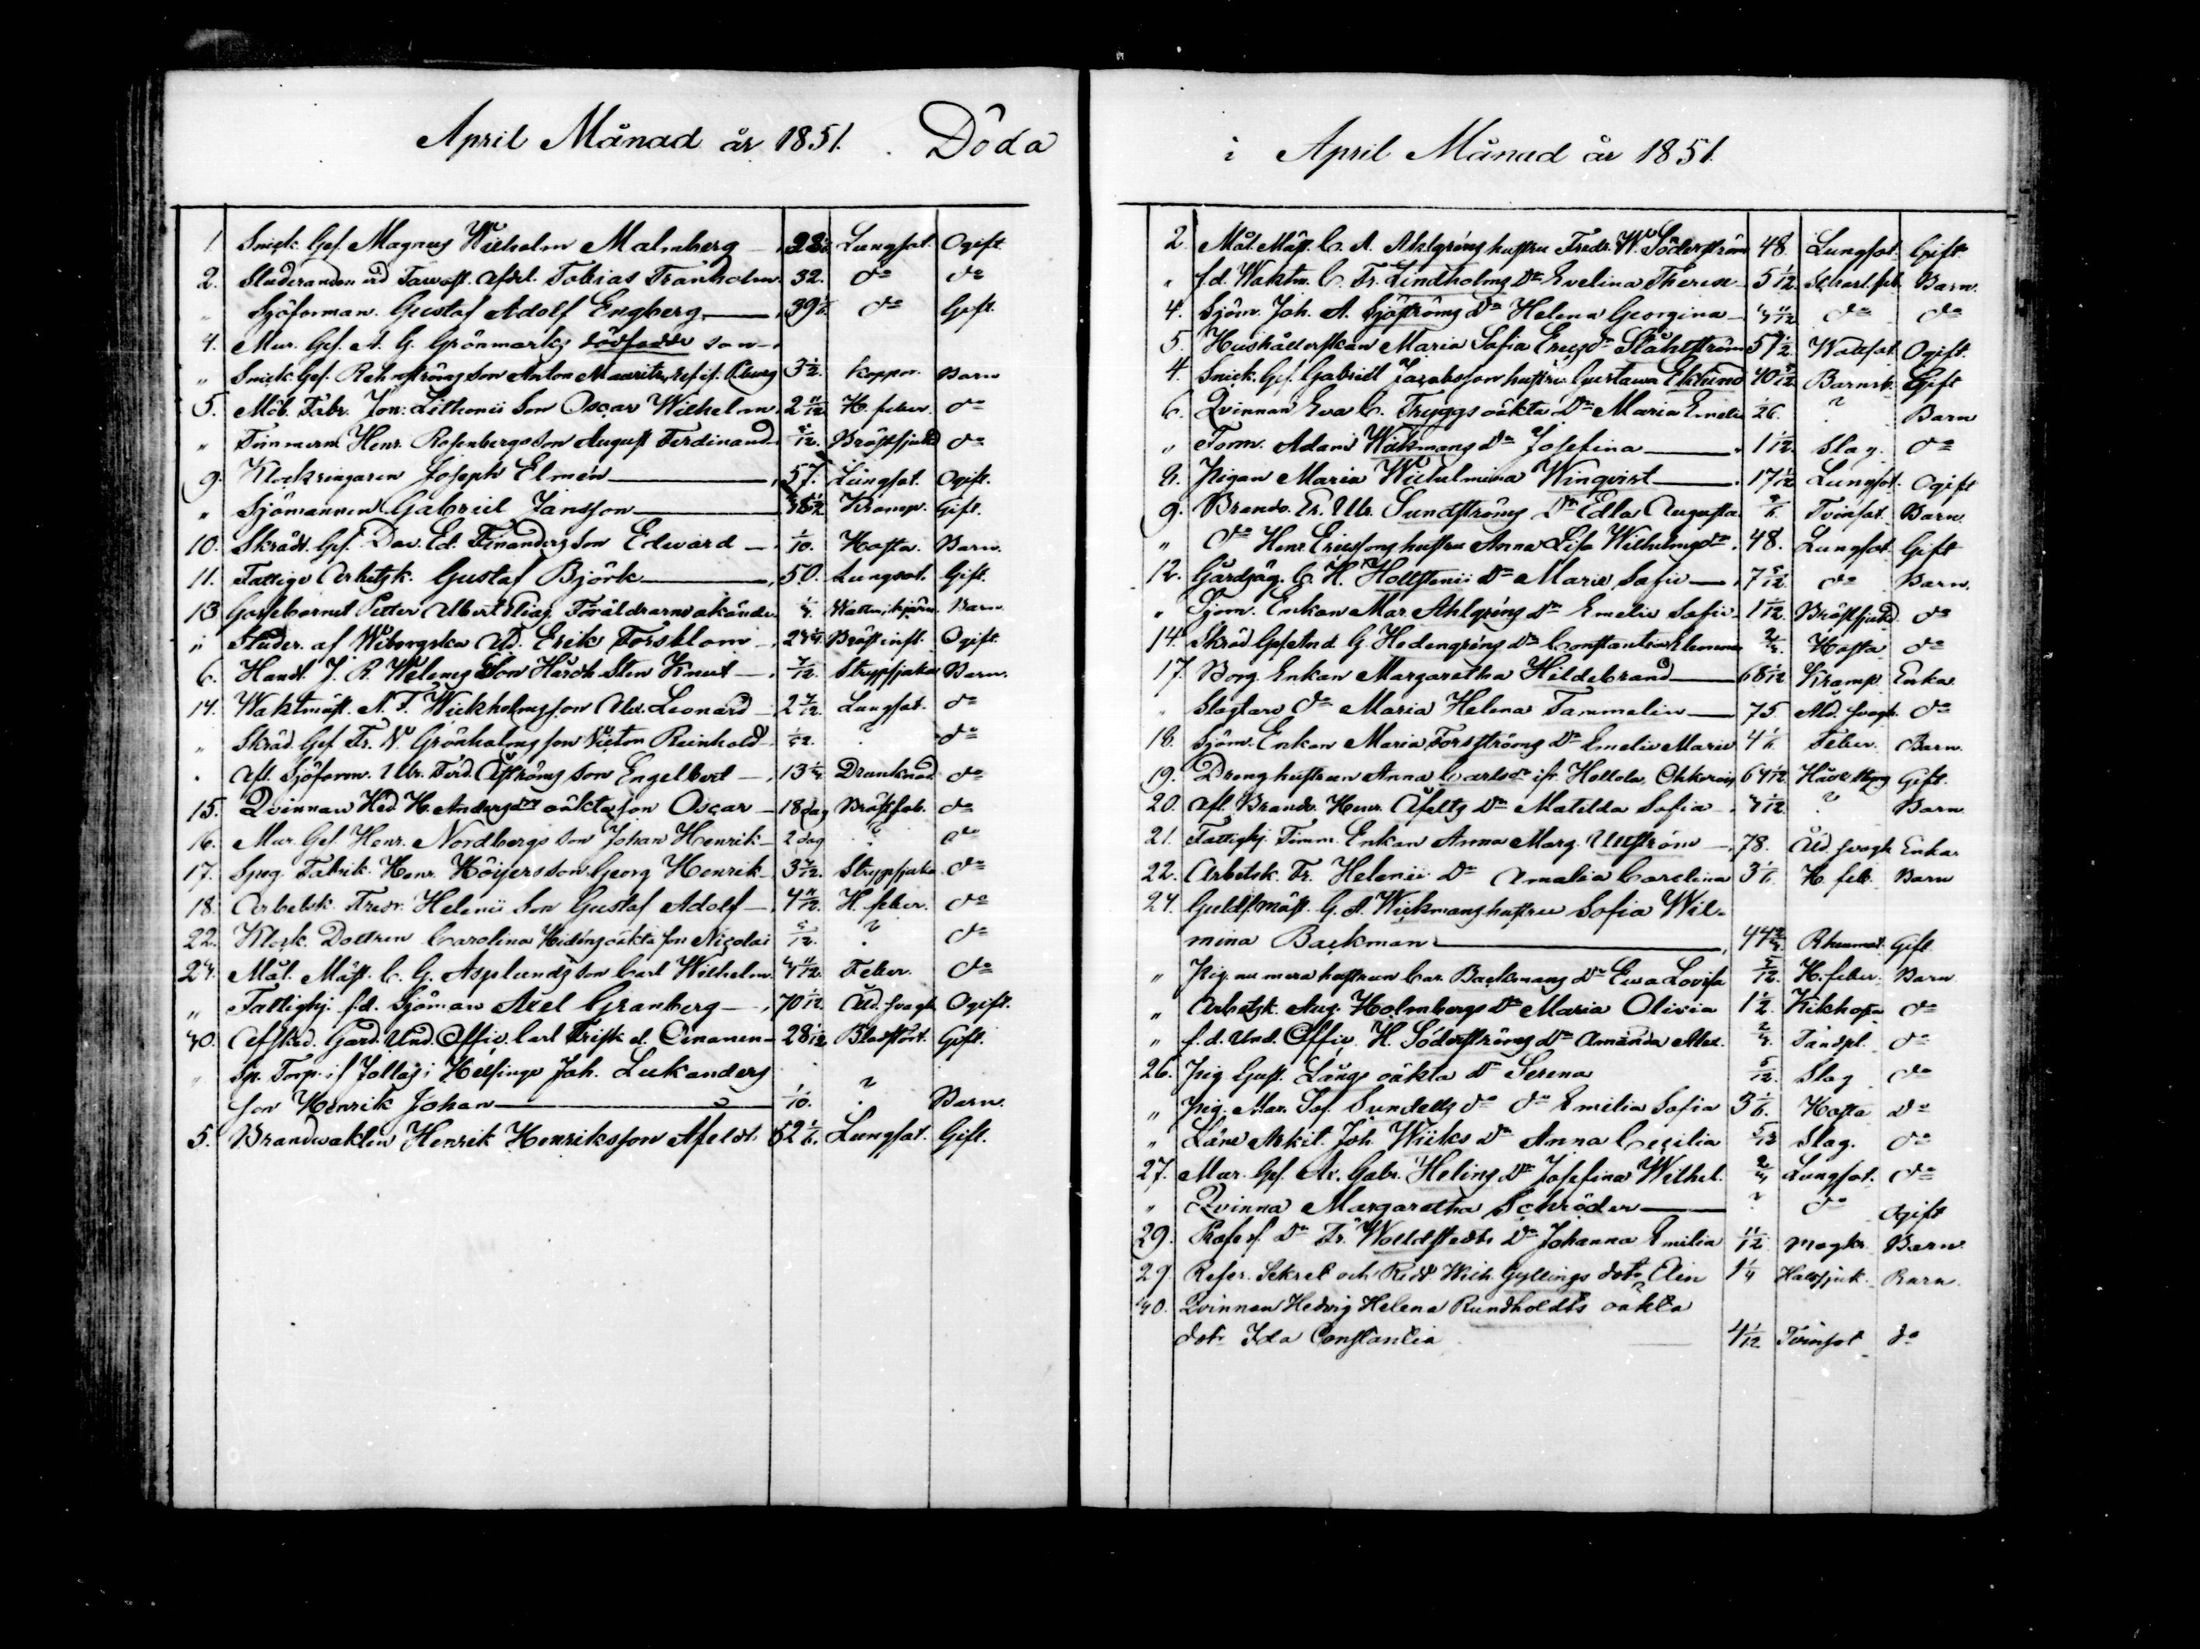 April Månad år 1851. Döda
1 Snick. Gef. Magnus Wilhelm Malmberg Lungsot. Ogift.
2. Studeranden vid Tavast. Afdel. Tobias Tranholm 32. do do
" Sjöforman. Gustaf Adolf Engberg 39 do Gift.
4. Mur. Gef. A. G. Grönmarks dödfödde son
" Snick. Gef. Rehnströms son Anton Mauritz, 3 1/2. Koppor. Barn
5. Möb. Fabr. Jon. Lithonii Son Oscar Wilhelm 2 11/12 H. feber. do
" Timmerm. Henr. Rosenbergs son August Ferdinand Bröstsjukd do
9. Klockringaren Joseph Elmén 57. Lungsot. Ogift.
" Sjömannen Gabriel Jansson Kramp. Gift.
10. Skrädd. Gef. Dav. Ed. Finanders Son Edward 1/10. Hosta. Barn.
11. Fattige Arbetsk. Gustaf Björk 50. Lungsot. Gift.
13 Gossebarnet Petter Albert Elias, Föräldrarne okände Barn
" Studer. af Wiborgska Afd. Erik Forsblom Bröst infl. Ogift
6. Handl. J. R. Sten Knut 7/12. Strypsjukan Barn.
14. Waktmäst. A. F. Wickholms son Alex. Leonard 2 7/12. Lungsot. do
" Skräd. Gef. Fr. W. Grönholms son Victor Reinhold ? do
" Afl. Sjöform. Ulr. Ferd. Åströms son Engelbert 13 Drunknad do
15. Qvinnan Hed. H. Andersdrs oäkta son Oscar 18 dag Bröstsjuk. do
16. Mur. Gef. Henr. Nordbergs Son Johan Henrik 2 dag ? do
17. Speg. Fabrik. Henr. Höijers son Georg Henrik 3 Strypsjuka do
18. Arbetsk. Fredr. Helenii Son Gustaf Adolf 4 11/12. H. feber. do
22. Klock. Dottren Carolina Hidéns oäkta son Nicolai 5/12. ? do
24. Mål. Mäst. C. G. Asplunds son Carl Wilhelm Feber. do
" Fattighj. f.d. Sjöman Axel Granberg 70 1/12 Åld. svagh Ogift.
30. Afsked. Gard. Und. Offic. Carl Frisk el. Oinonen 28 1/12 Gift.
" Sp. Torp. if Jollas i Helsinge Joh. Lukanders
son Henrik Johan 1/10. ? Barn.
5. Brandvakten Henrik Henriksson Afeldt 62 1/6. Lungsot. Gift.
i April Månad år 1851.
2. Mål. Mäst. C. A. Ahlgréns hustru Fredr. W. Söderström 48. Lungsot. Gift.
" f.d. Waktm. C. Fr. Lindholms Dr Evelina Therese 5 1/12. Scharl. feb. Barn.
4. Sjöm. Joh. A. Sjöströms Dr Helena Georgina do do
5. Hushållerskan Maria Sofia Ericsdr Ståhlström Wattsot. Ogift.
4. Snick. Gef. Gabriel Jacobsson hustru Gustava Eklund 40 Barnsb. Gift
6. Qvinnan Eva C. Tryggs oäkta Dr Maria Emelie ? Barn
" Form. Adam Wickmans Dr Josefina 1 1/12. Slag. do
9. Pigan Maria Wilhelmina Winqvist 17 1/12 Lungsot. Ogift
9. Brandv. Er. Ulr. Sundströms Dr Edla Augusta Tvinsot. Barn.
" do Henr. Ericssons hustru Anna Lisa Wilhelmsdr 48. Lungsot. Gift
12. Gardsjäg. C. H. Holtstenii Dr Maria Sofia 7 5/12 do Barn.
" Sjöm. Enkan Mar. Ahlgréns Dr Emelie Sofie 1 1/12. Bröstsjukd do
14. Skräd. Gef. And. G. Hedengréns Dr Constantia Hosta do
17. Borg. Enkan Margaretha Hildebrand 68 1/12 Kramp Enka
" Slagtare do Maria Helena Tammelin 75 Åld. svagh. do
18. Sjöm. Enkan Maria Forsströms Dr Emelie Marie 4 1/6. Feber. Barn.
19. Dreng hustrun Anna Carlsdr ifr. Hollola, Gift.
20. Afl. Brandv. Henr. Afelts Dr Matilda Sofia ? Barn
21. Fattighj. Timm. Enkan Anna Marg. 78. Åld. svagh Enka.
22. Arbetsk. Fr. Helenii Dr Amalia Carolina 3 1/6. H. feb. Barn
24. Guldsmäst. G. A. Wickmans hustru Sofia Wil-
mina Backman 44 Rheumat. Gift
" Pig. nu mera hustrun Car. Backmans Dr Eva Lovisa 5/12. H. feber. Barn
" Arbetsk. Aug. Holmbergs Dr Maria Olivia 1 1/2. Kikhosta do
" f.d. Und. Offic. H. Söderströms Dr Amanda Alex. Tandspl. do
26. Pig Gust. Långs oäkta Dr Serena 5/12. Slag do
" Pig. Mar. Sof. Sundells do do Emilia Sofia 3 1/6. Hosta do
" Läne Arkit. Joh. Wiiks Dr Anna Cecilia Slag. do
27. Mur. Gef. Al. Gabr. Helins Dr Josefina Wilhel. Lungsot. do
" Qvinna Margaretha Schröder ? do Ogift
29. Profess. Dr Fr. Wolldstedts Dr Johanna Emilia 11/12. Magkr. Barn
29. Refer. Sekret och Ridd Wilh. Gyllings dotr Elin Halssjuk. Barn.
30. Qvinnan Hedvig Helena Rundholdts oäkta
dotr Ida Constantia 4 1/12 Tvinsot do